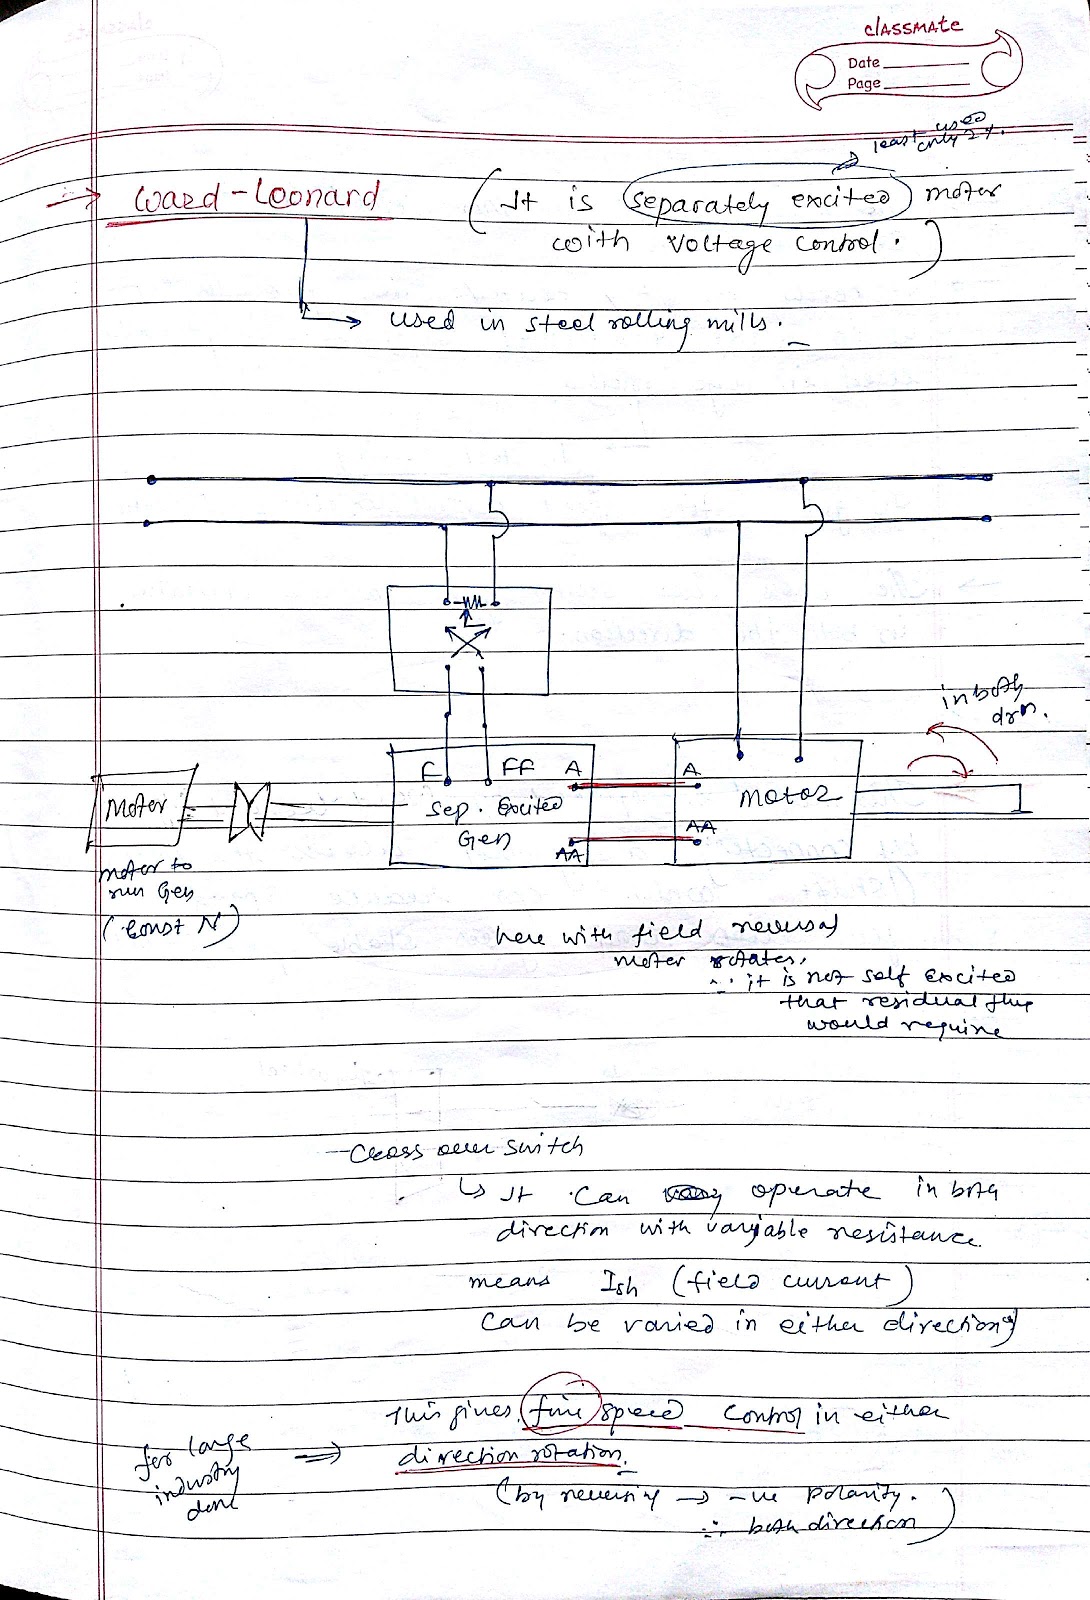 classmate
Date
Page
least used
only 2%.
→ Ward-Leonard (It is separately excited motor
with voltage control.)
→ used in steel rolling mills.
in both
drn.
F FF A
A
Motor
Sep. Excited
Gen
AA
AA
Motor
motor to
run Gen
(const N)
here with field reversal
motor rotates,
∵ it is not self excited
that residual flux
would require
- Cross over switch
↳ It can operate in both
direction with variable resistance
means Ish (field current)
can be varied in either direction
This gives fine speed control in either
direction rotation.
for large
industry
done
⇒
(by reversing → -ve polarity.
∴ both direction)